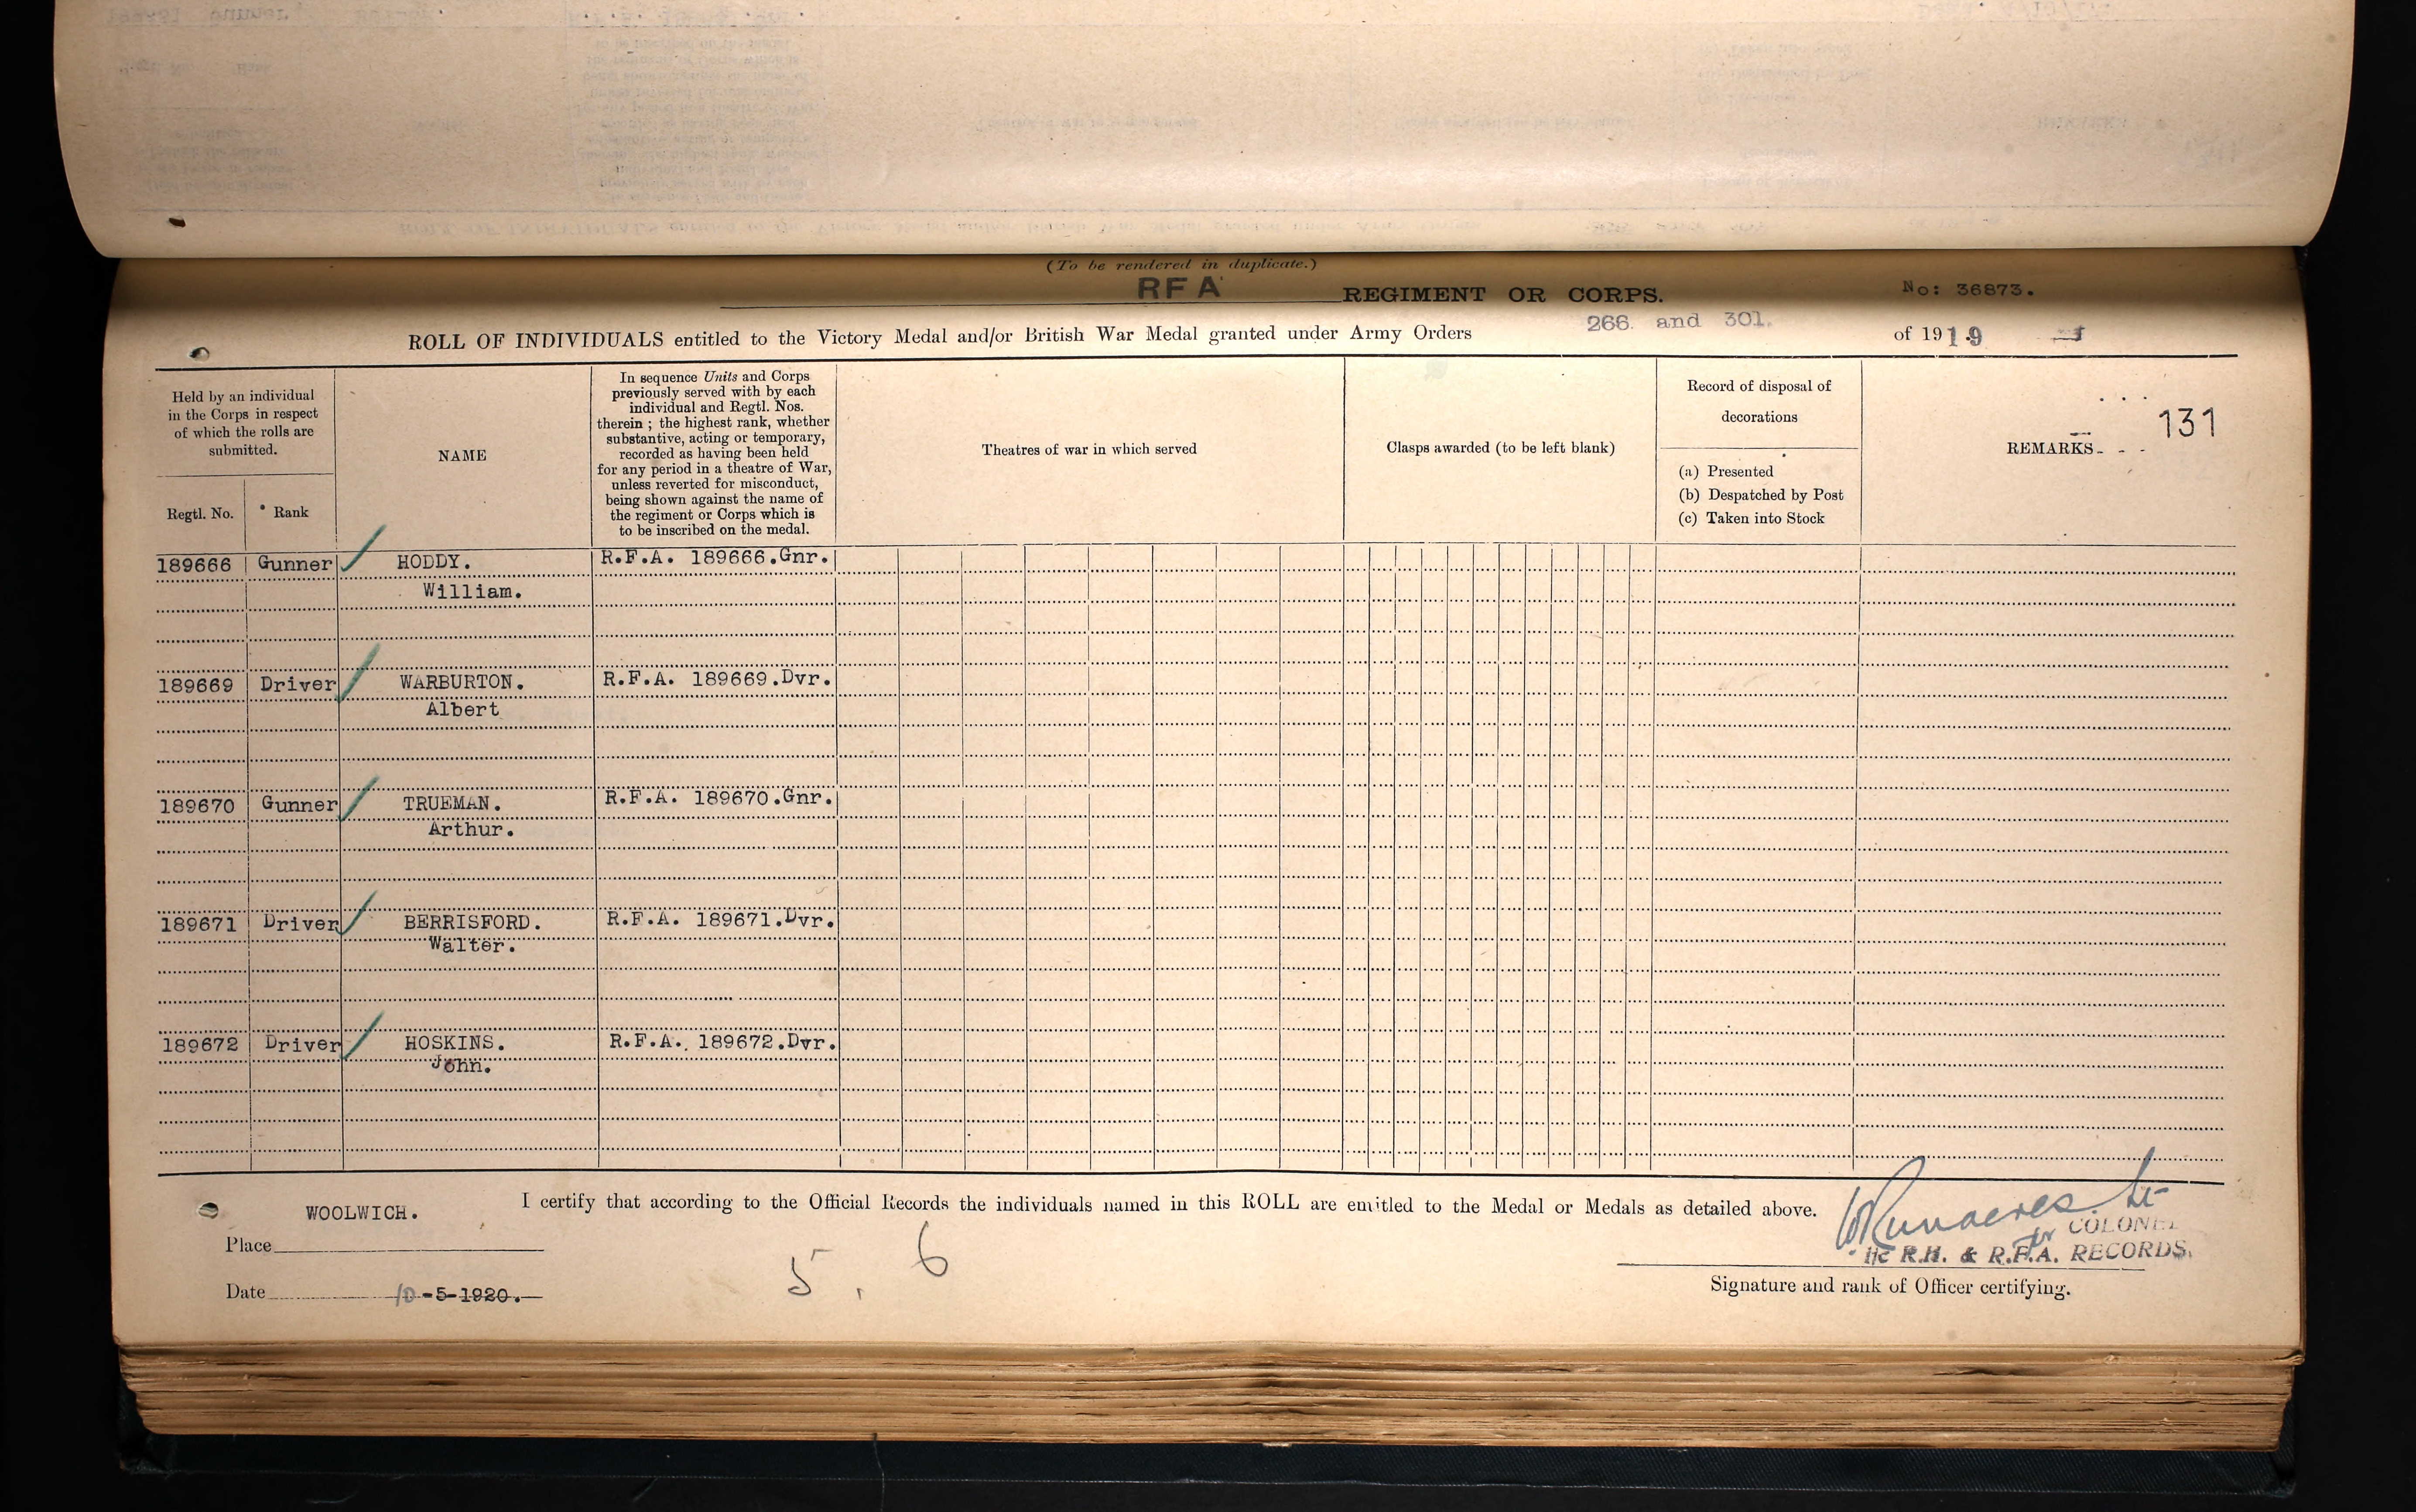 (To be rendered in duplicate.)
RFA REGIMENT OR CORPS. No: 36873.
ROLL OF INDIVIDUALS entitled to the Victory Medal and/or British War Medal granted under Army Orders 266. and 301. of 1919
131
Held by an individual
in the Corps in respect
of which the rolls are
submitted.
Regtl. No. Rank
NAME
In sequence Units and Corps
previously served with by each
individual and Regtl. Nos.
therein ; the highest rank, whether
substantive, acting or temporary,
recorded as having been held
for any period in a theatre of War,
unless reverted for misconduct,
being shown against the name of
the regiment or Corps which is
to be inscribed on the medal.
Theatres of war in which served
Clasps awarded (to be left blank)
Record of disposal of
decorations
(a) Presented
(b) Despatched by Post
(c) Taken into Stock
REMARKS
189666 Gunner HODDY. R.F.A. 189666.Gnr.
William.
189669 Driver WARBURTON. R.F.A. 189669.Dvr.
Albert
189670 Gunner TRUEMAN. R.F.A. 189670.Gnr.
Arthur.
189671 Driver BERRISFORD. R.F.A. 189671.Dvr.
Walter.
189672 Driver HOSKINS. R.F.A. 189672.Dvr.
John.
I certify that according to the Official Records the individuals named in this ROLL are entitled to the Medal or Medals as detailed above.
WOOLWICH.
Place
Date 10-5-1920.
5. 6
Lt
for COLONEL
I/c R.H. & R.F.A. RECORDS.
Signature and rank of Officer certifying.